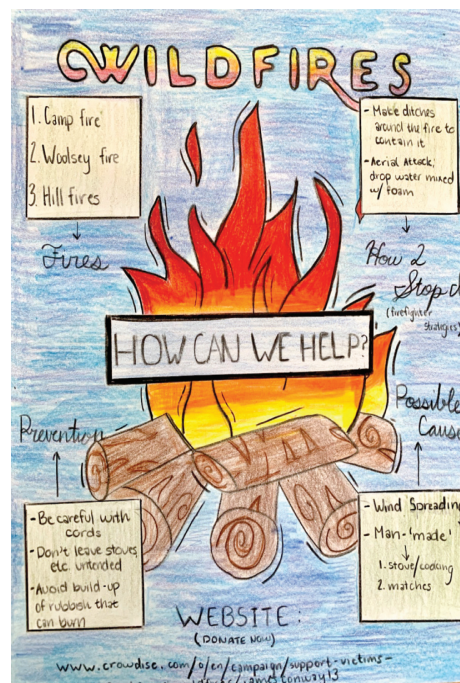 WILDFIRES
1. Camp fire
2. Woolsey fire
3. Hill fires
Fires
- Make ditches
around the fire to
contain it
- Aerial Attack;
drop water mixed
w/ foam
How 2
Stop
(firefighter
strategies)
HOW CAN WE HELP?
Prevention
- Be careful with
cords
- Don't leave stoves,
etc. untended
- Avoid build-up
of rubbish that
can burn
Possible
Cause
- Wind Spreading
- Man-'made'
1. stove/cooking
2. matches
WEBSITE:
(DONATE NOW)
www.crowdise.com/o/en/campaign/support-victims-